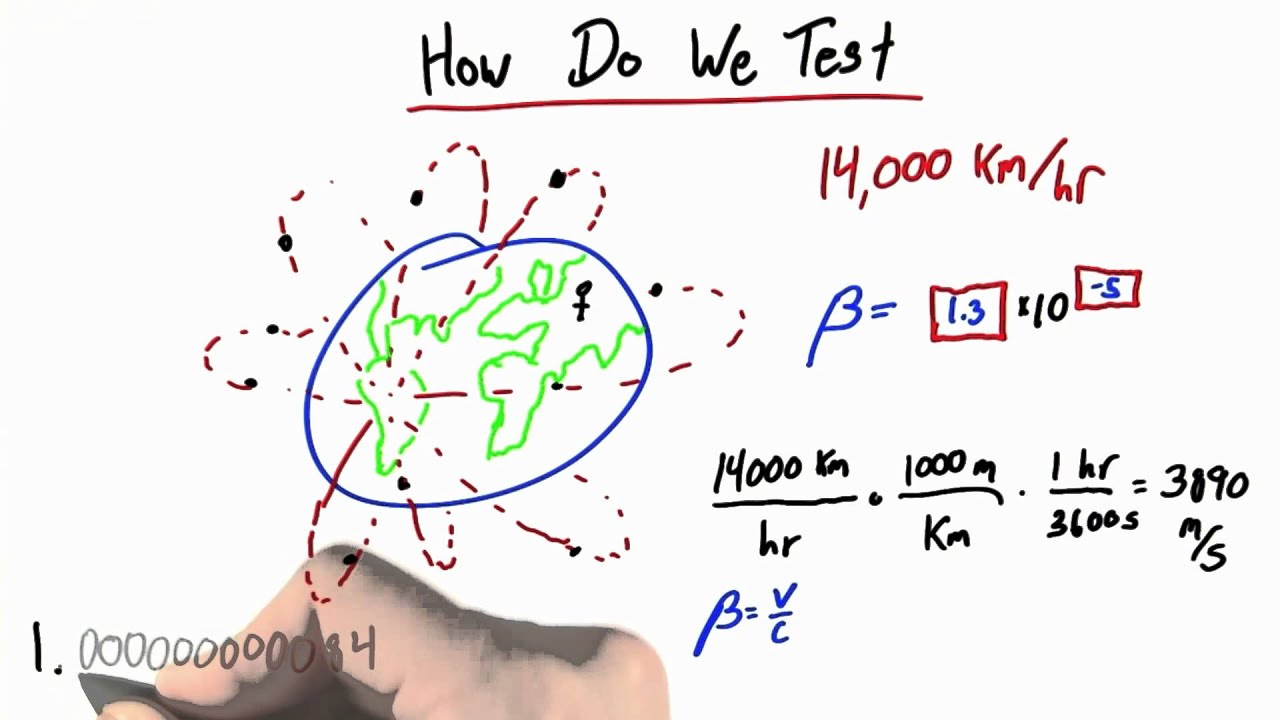 How Do We Test
14,000 Km/hr
β = 1.3 × 10^-5
14000 Km/hr · 1000 m/Km · 1 hr/3600s = 3890 m/s
β = v/c
1.00000000000084